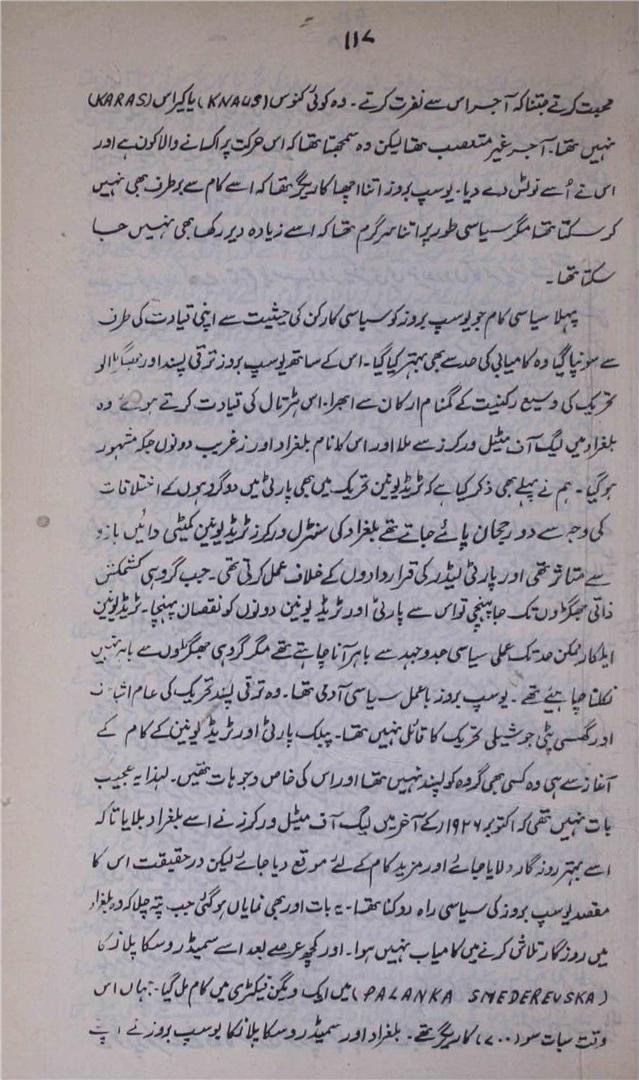 ۱۱۷
محبت کرتے جتنا کہ آجر اس سے نفرت کرتے۔ وہ کوئی کنوس (KNAUS) یا کیراس (KARAS)
نہیں تھا۔ آجر غیر متعصب تھا لیکن وہ سمجھتا تھا کہ اس حرکت پر اکسانے والا کون ہے اور
اس نے اُسے نوٹس دے دیا۔ یوسپ بروز اتنا اچھا کاریگر تھا کہ اسے کام سے برطرف بھی نہیں
کر سکتا تھا مگر سیاسی طور پر اتنا سرگرم تھا کہ اسے زیادہ دیر رکھا بھی نہیں جا
سکتا تھا۔
پہلا سیاسی کام جو یوسپ بروز کو سیاسی کارکن کی حیثیت سے اپنی قیادت کی طرف
سے سونپا گیا وہ کامیابی کی حد سے بھی بہتر کیا گیا۔ اس کے ساتھ یوسپ بروز ترقی پسند اور جھگڑالو
تحریک کی وسیع رکنیت کے گمنام ارکان سے ابھرا۔ اس ہڑتال کی قیادت کرتے ہوئے وہ
بلغراد میں لیگ آف میٹل ورکرز سے ملا اور اس کا نام بلغراد اور زغریب دونوں جگہ مشہور
ہو گیا۔ ہم نے پہلے بھی ذکر کیا ہے کہ ٹریڈ یونین تحریک میں بھی پارٹی میں دو گروہوں کے اختلافات
کی وجہ سے دو رجحان پائے جاتے تھے بلغراد کی سنٹرل ورکرز ٹریڈ یونین کمیٹی دائیں بازو
سے متاثر تھی اور پارٹی لیڈر کی قراردادوں کے خلاف عمل کرتی تھی۔ جب گروہی کشمکش
ذاتی جھگڑوں تک جا پہنچی تو اس سے پارٹی اور ٹریڈ یونین دونوں کو نقصان پہنچا۔ ٹریڈ یونین
اہلکار ممکن حد تک عملی سیاسی جدوجہد سے باہر آنا چاہتے تھے مگر گروہی جھگڑوں سے باہر نہیں
نکلنا چاہیئے تھے۔ یوسپ بروز باعمل سیاسی آدمی تھا۔ وہ ترقی پسند تحریک کی عام
اور گھسی پٹی جوشیلی تحریک کا قائل نہیں تھا۔ پبلک پارٹی اور ٹریڈ یونین کے کام کے
آغاز سے ہی وہ کسی بھی گروہ کو پسند نہیں تھا اور اس کی خاص وجوہات تھیں۔ لہذا یہ عجیب
بات نہیں تھی کہ اکتوبر ۱۹۲۶ء کے آخر میں لیگ آف میٹل ورکرز نے اسے بلغراد بلایا تاکہ
اسے بہتر روزگار دلایا جائے اور مزید کام کے لئے موقع دیا جائے لیکن درحقیقت اس کا
مقصد یوسپ بروز کی سیاسی راہ روکنا تھا۔ یہ بات اور بھی نمایاں ہو گئی جب پتہ چلا کہ وہ بلغراد
میں روزگار تلاش کرنے میں کامیاب نہیں ہوا۔ اور کچھ عرصے بعد اسے سمیڈروسکا پلانکا
(PALANKA SMEDEREVSKA) میں ایک ویگن فیکٹری میں کام مل گیا۔ جہاں اس
وقت سات سو (۷۰۰) کاریگر تھے۔ بلغراد اور سمیڈروسکا پلانکا یوسپ بروز نے